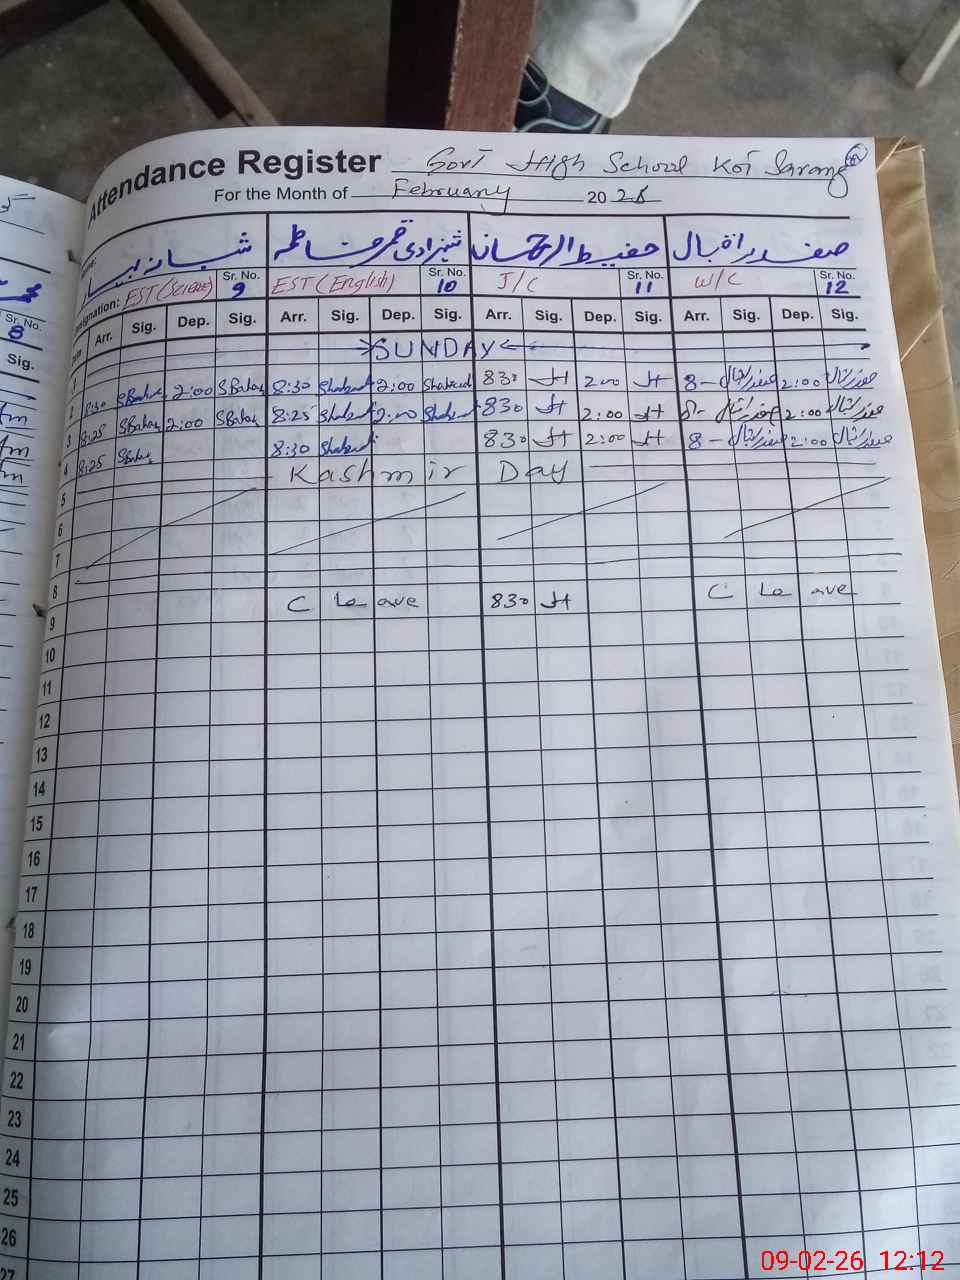 Attendance Register Govt High School Koi Sarang
For the Month of February 20 26
شہزادی قمر فاطمہ حفیظ الرحمان صفدر اقبال
Designation: EST (Science) Sr. No. 9 EST (English) Sr. No. 10 J/C Sr. No. 11 W/C Sr. No. 12
Sr. No. 8
Date Arr. Sig. Dep. Sig. Arr. Sig. Dep. Sig. Arr. Sig. Dep. Sig. Arr. Sig. Dep. Sig.
Sig.
1 SUNDAY
2 8:30 2:00 8:30 2:00 830 200 8- 2:00
3 8:25 2:00 8:25 2:00 830 2:00 8- 2:00
4 8:25 8:30 830 2:00 8- 2:00
5 Kashmir Day
6
7
8
9 C Leave 830 C Leave
10
11
12
13
14
15
16
17
18
19
20
21
22
23
24
25
26
27
09-02-26 12:12